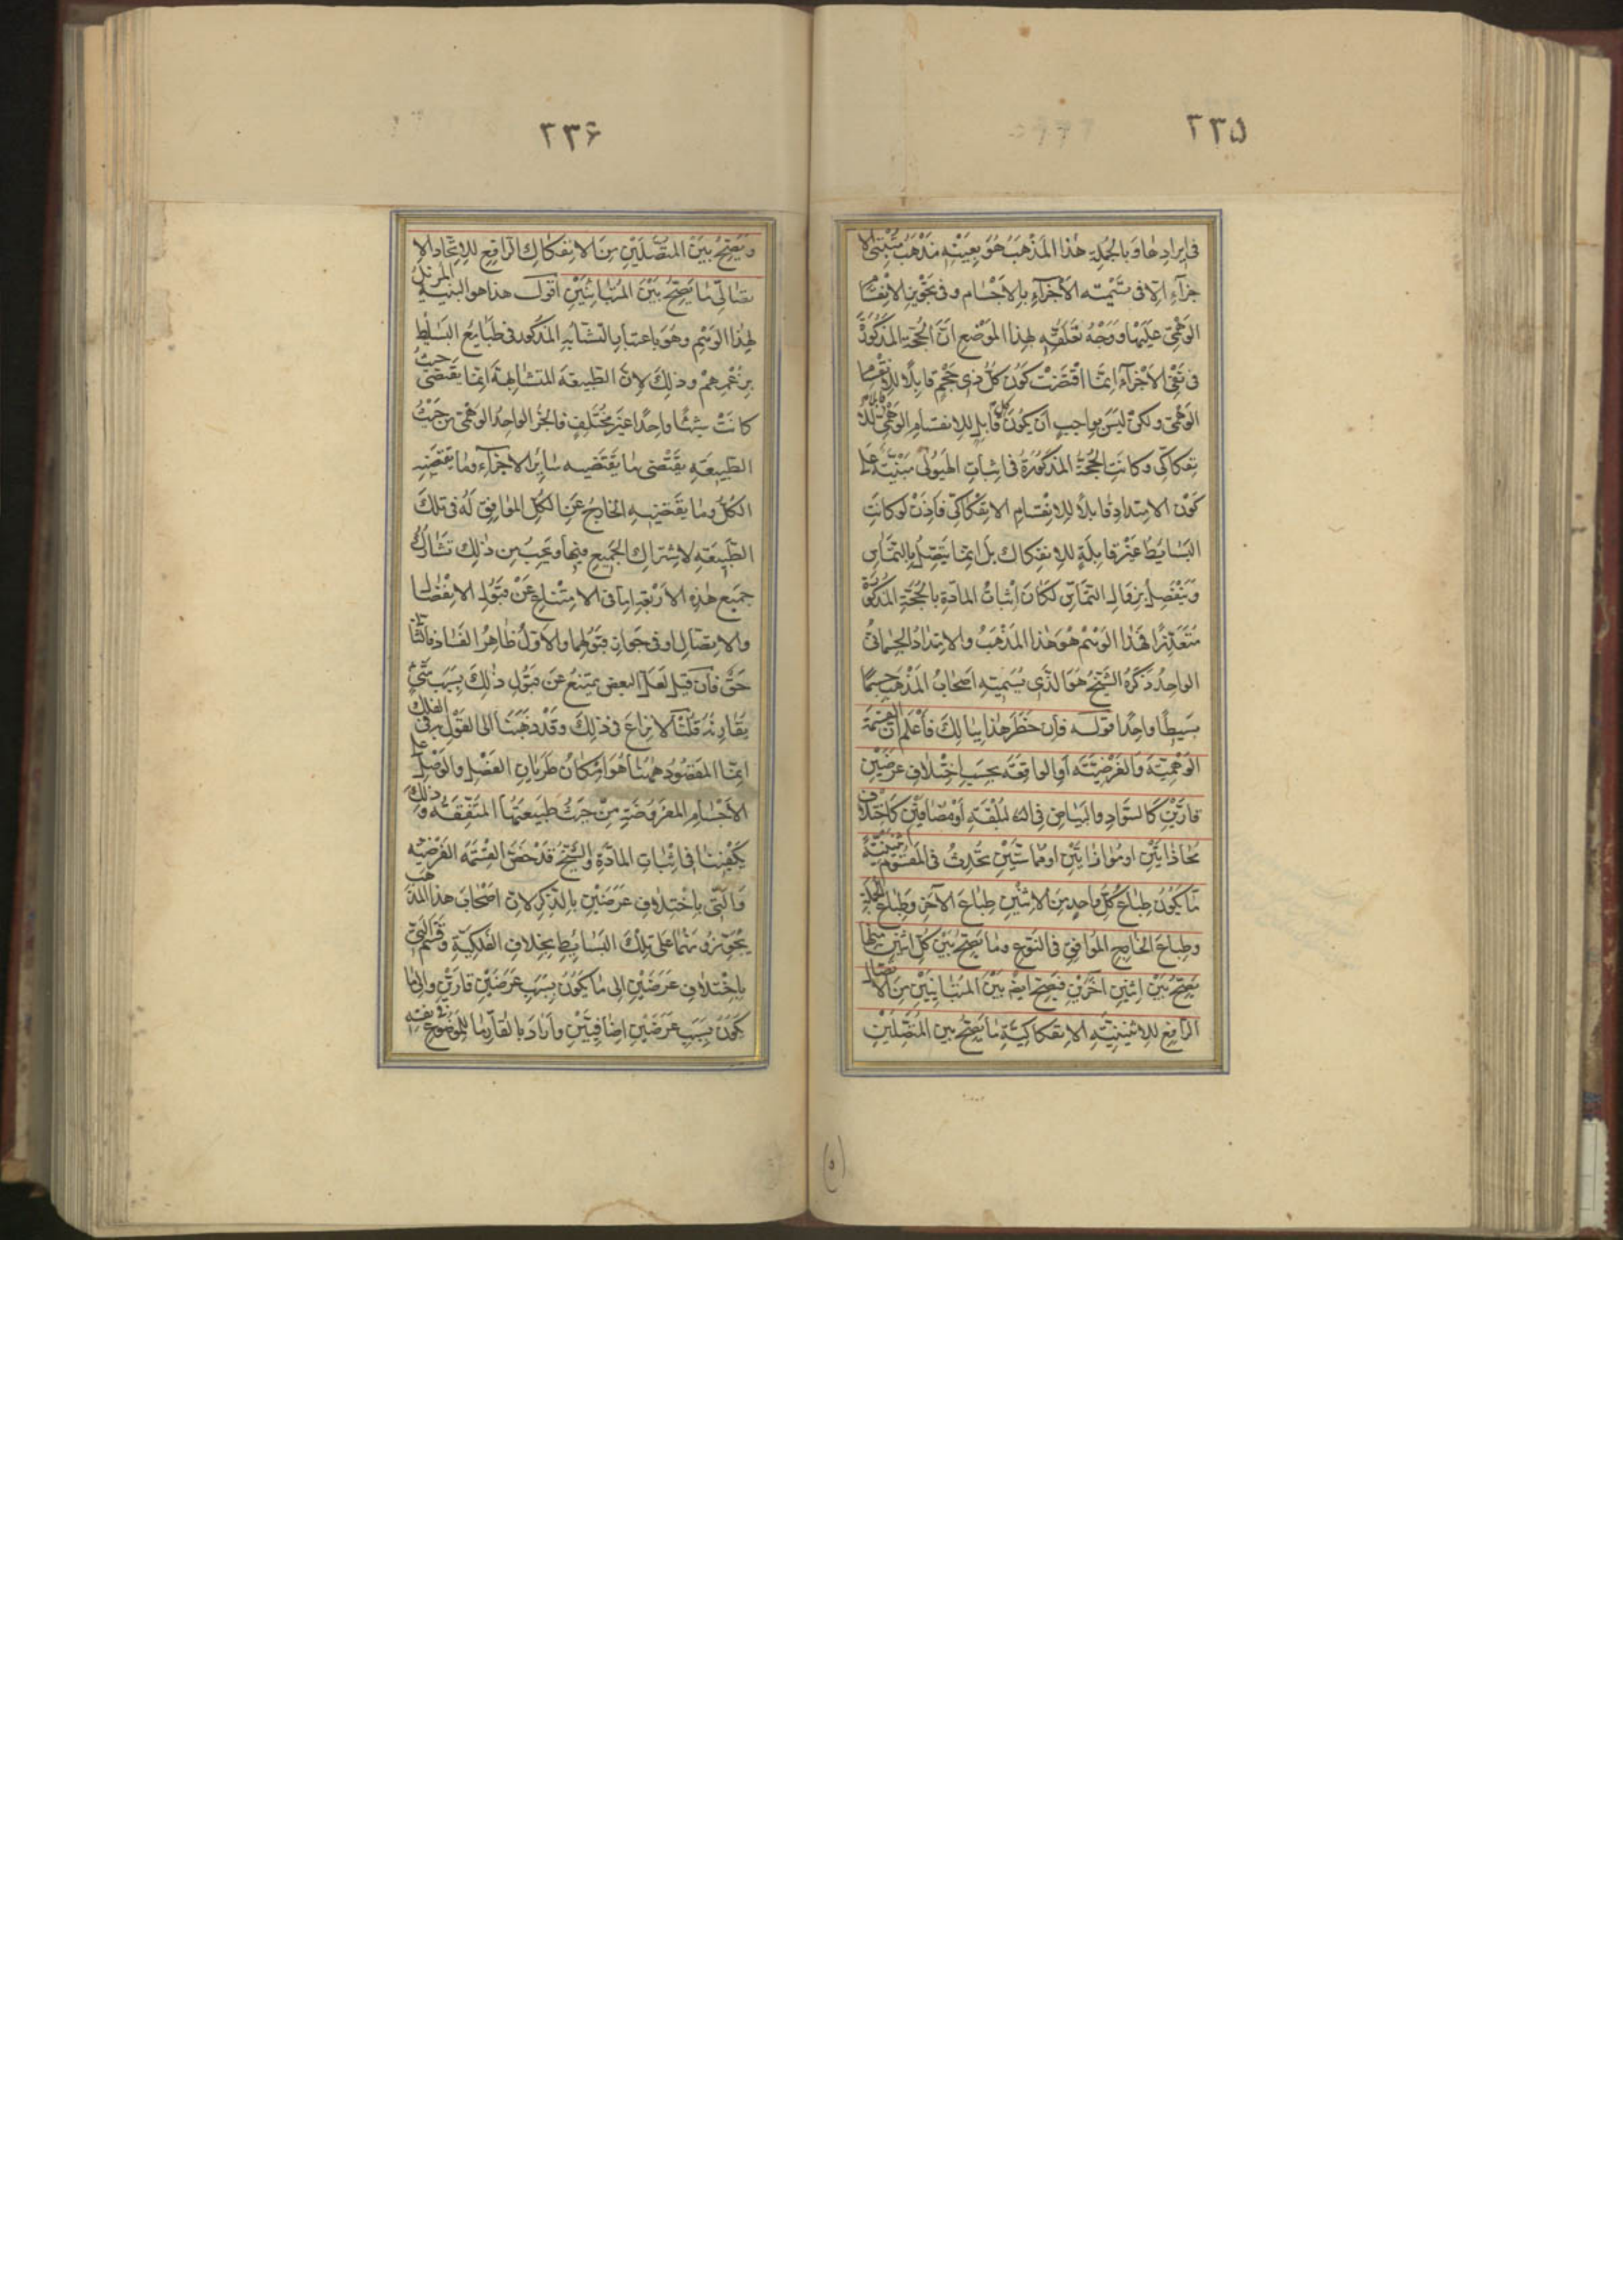 ٢٣۵
فى ايرادها وبالجملة هذا المذهب هو بعينه مذهب مثبتى الا
جزآء الا فى تسميته الاجزآء بالاجسام وفى تجويز الانقسام
الوهمى عليها ووجه تعلقه بهذا الموضع ان الحجة المذكورة
فى نفى الاجزآء انما اقتضت كون كل ذى حجم قابلا للانقسام
الوهمى ولكن ليس بواجب ان يكون كل قابل للانقسام الوهمى قابلا للا
نفكاكى وكانت الحجة المذكورة فى اثبات الهيولى مبنية على
كون الامتداد قابلا للانقسام الانفكاكى فاذن لو كانت
البسايط غير قابلة للانفكاك بل انما يتصل بالتماس
وينفصل بزوال التماس لكان اثبات المادة بالحجة المذكورة
متعذرا فهذا الوهم هو هذا المذهب والامتداد الجسمانى
الواحد ذكره الشيخ هو الذى يسميه اصحاب المذهب جسما
بسيطا واحدا قوله فان خطر هذا ببالك فاعلم ان القسمة
الوهمية والفرضية او الواقعة بحسب اختلاف عرضين
قارين كالسواد والبياض فى البلقة او مضافين كاختلاف
محاذاتين او موازاتين او مماستين تحدث فى المقسوم اثنينية
ما يكون طباع كل واحد من الاثنين طباع الآخر وطباع الجملة
وطباع الخارج الموافق فى النوع وما يصح بين كل اثنين منها
يصح بين اثنين آخرين فيصح ايضا بين المتباينين من الاتصال
الرافع للاثنينية الانفكاكية ما يصح بين المتصلين
(٥)
٢٣۶
ويصح بين المتصلين من الانفكاك الرافع للاتحاد الا
تصالى ما يصح بين المتباينين اقول هذا هو التنبيه المزيل
لهذا الوهم وهو باعتبار التشابه المذكور فى طبايع البسايط
بزعمهم وذلك لان الطبيعة المتشابهة انما يقتضى حيث
كانت شيئا واحدا غير مختلف فالجزء الواحد الوهمى من حيث
الطبيعة يقتضى ما يقتضيه ساير الاجزآء وما يقتضيه
الكل وما يقتضيه الخارج عن الكل الموافق له فى تلك
الطبيعة لاشتراك الجميع فيها ويجب من ذلك تشارك
جميع هذه الاربعة اما فى الامتناع عن قبول الانفصال
والاتصال او فى جواز قبولهما والاول ظاهر الفساد فالثانى
حق فان قيل لعل البعض يمتنع عن قبول ذلك بسبب شىء
يقارنه قلنا لا نزاع فى ذلك وقد ذهبنا الى القول به فى الفلك
انما المقصود ههنا هو امكان طريان الفصل والوصل على
الاجسام المفروضة من حيث طبيعتها المتفقة وذلك
يكفينا فى اثبات المادة والشيخ قد خص القسمة الفرضيه
والتى باختلاف عرضين بالذكر لان اصحاب هذا المذهب
يجوزونهما على تلك البسايط بخلاف الفكية وقسم التى
باختلاف عرضين الى ما يكون بسبب عرضين قارين والى ما
يكون بسبب عرضين اضافيين واراد بالقار ما للموضوع فى نفسه